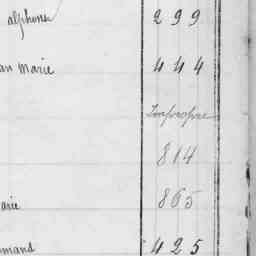 alphonse 299
an Marie 444
Impropre
814
arie 865
mand 425